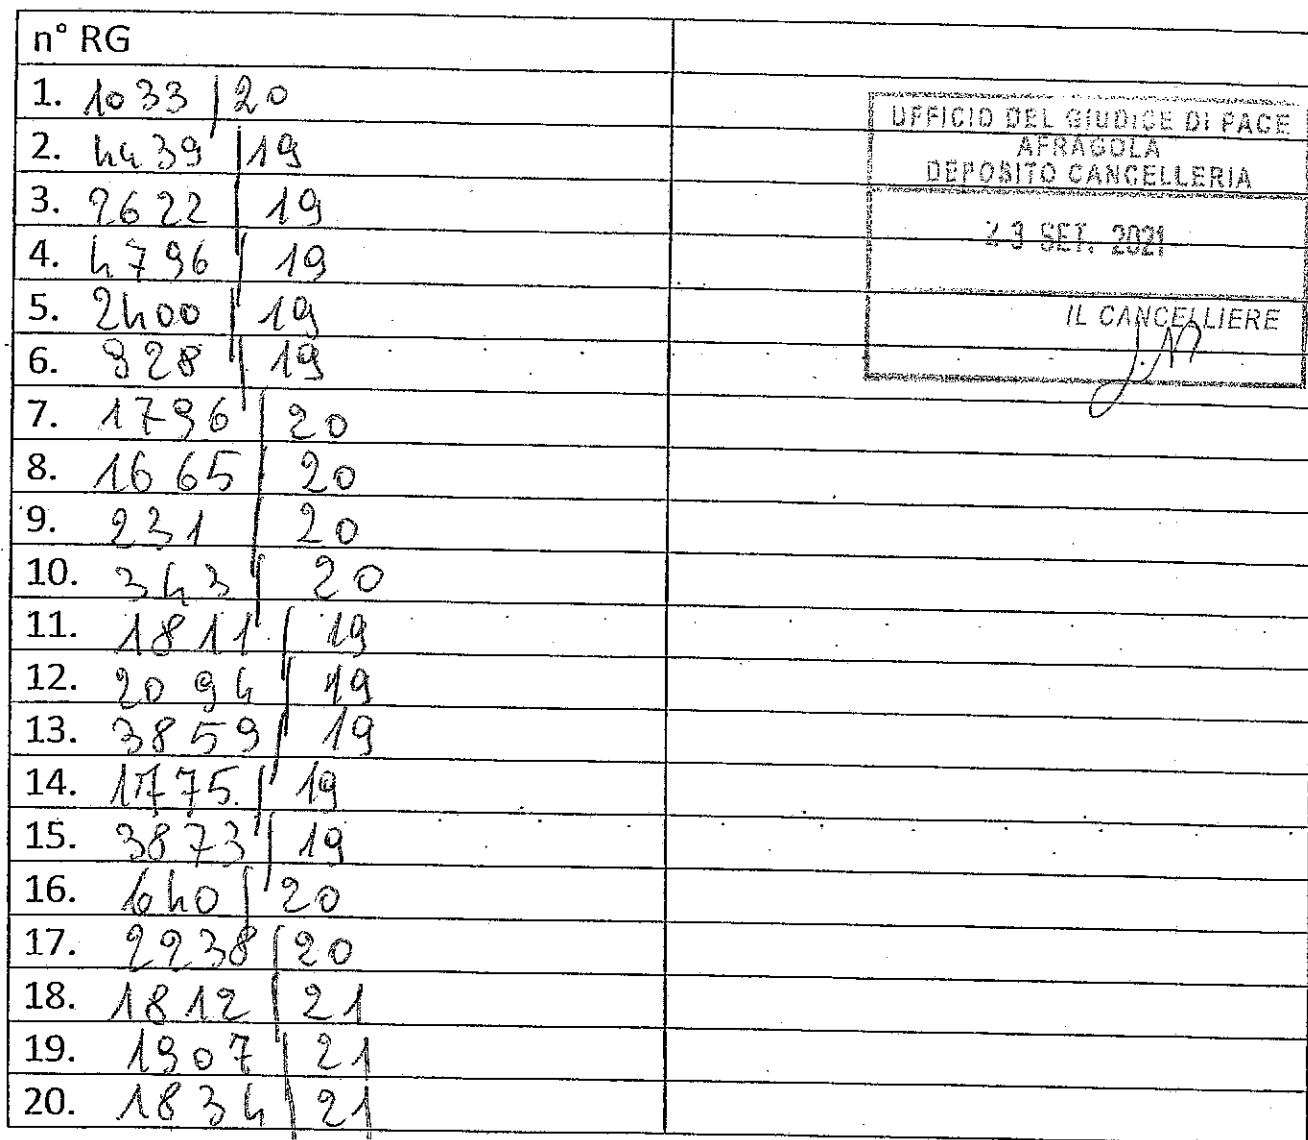 n° RG
1. 1033/20
2. 4439/19
3. 2622/19
4. 4796/19
5. 2400/19
6. 928/19
7. 1796/20
8. 1665/20
9. 231/20
10. 343/20
11. 1811/19
12. 2094/19
13. 3859/19
14. 1775/19
15. 3873/19
16. 640/20
17. 2238/20
18. 1812/21
19. 1907/21
20. 1834/21
UFFICIO DEL GIUDICE DI PACE
AFRAGOLA
DEPOSITO CANCELLERIA
23 SET. 2021
IL CANCELLIERE